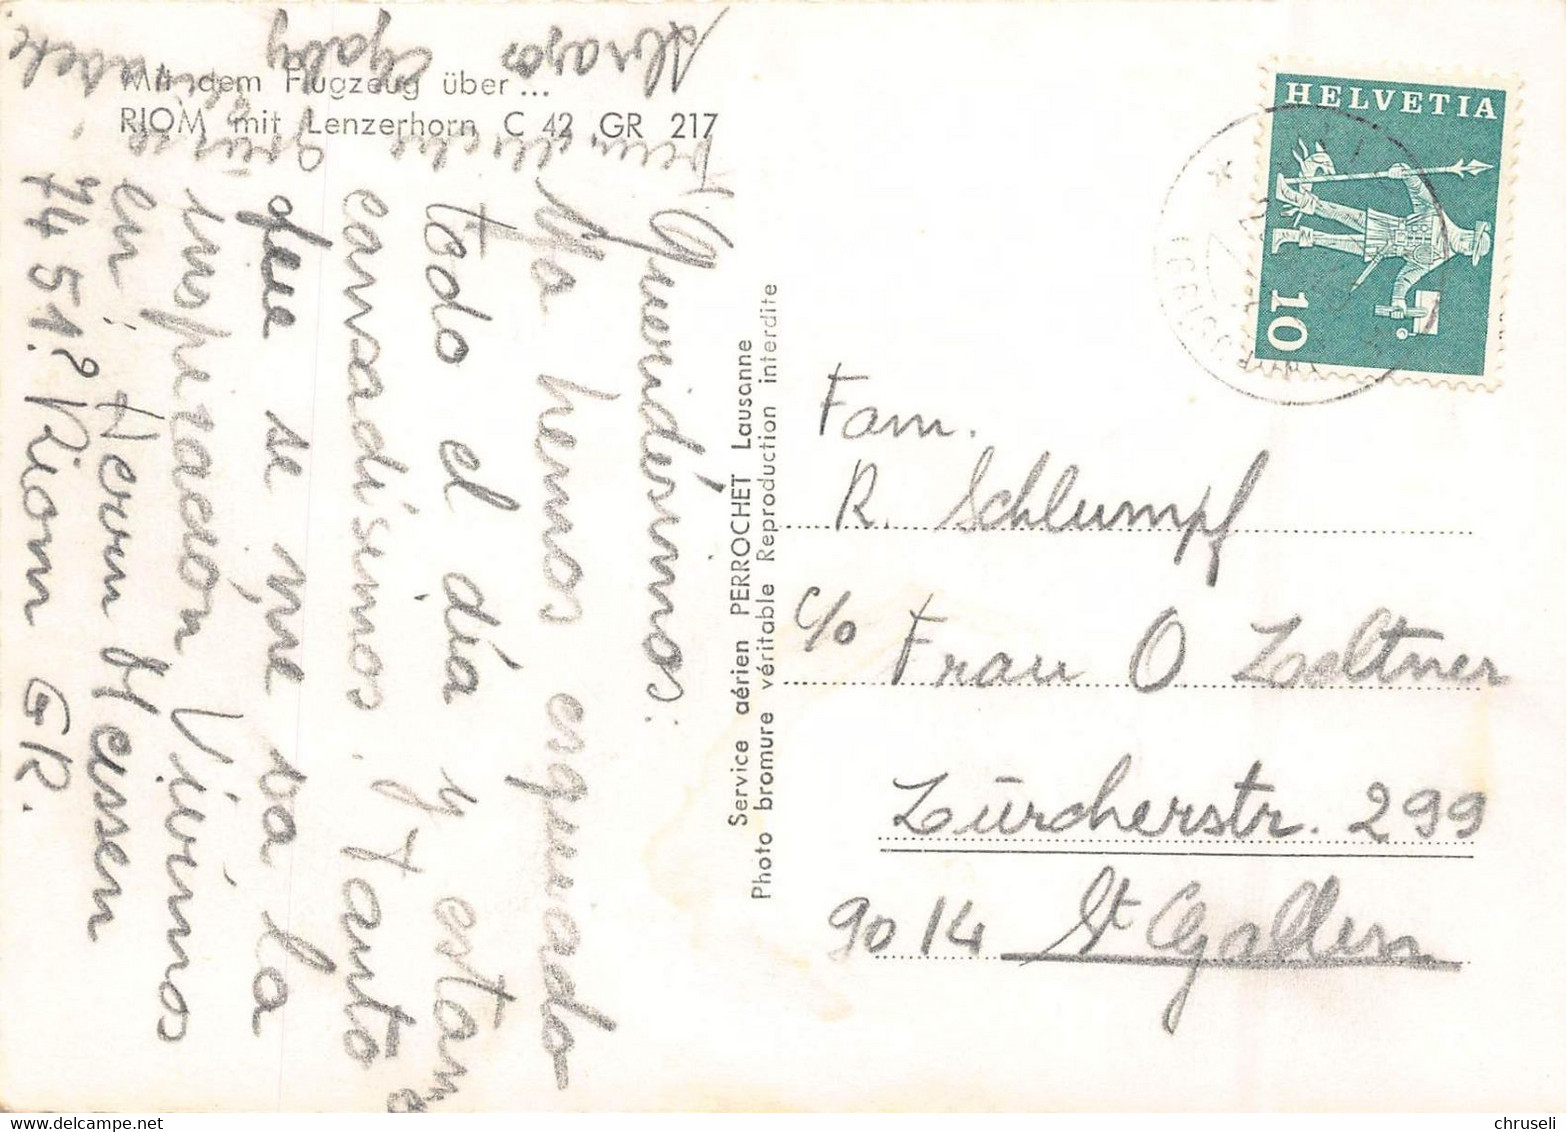 Mit dem Flugzeug über...
RIOM mit Lenzerhorn C 42 GR 217
Queridísimos:
Ya hemos esquiado
todo el día y estamos
cansadísimos. Y tanto
que se me va la
inspiración. Vivimos
en: Herrn Hessen
7451? Riom GR.
Abrazos Gaby
Service aérien PERROCHET Lausanne
Photo bromure véritable Reproduction interdite
HELVETIA
10
Fam.
R. Schlumpf
c/o Frau O Zeltner
Zürcherstr. 299
9014 St Gallen
chruseli